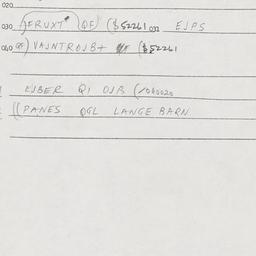 020
030 )FRUXT* QF) ($52261 033 EJPS
040 QF) VAJNTROJB+ QF ($52261
EJBER QI OJB (/060020
((PANES QGL LANGE BARN